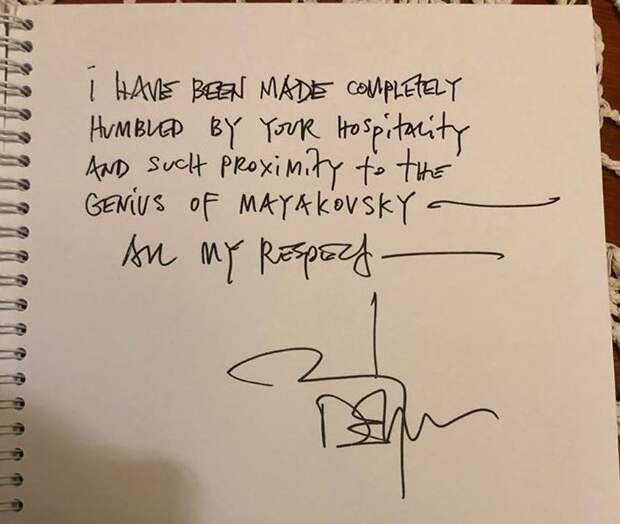 i HAVE BEEN MADE COMPLETELY
HUMBLED BY YOUR HOSPITALITY
AND SUCH PROXIMITY to tHE
GENIUS OF MAYAKOVSKY
All MY RESPECT